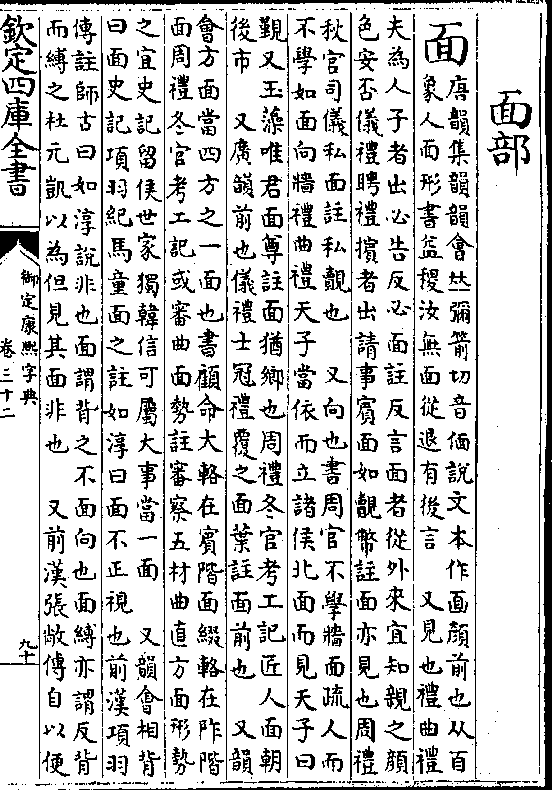 面部
面
唐韻集韻韻會𠀤彌箭切音偭說文本作𡇢顔前也从百
象人面形書益稷汝無面從退有後言　又見也禮曲禮
夫為人子者出必告反必面註反言面者從外來宜知親之顔
色安否儀禮聘禮擯者出請事賓面如覿幣註面亦見也周禮
秋官司儀私面註私覿也　又向也書周官不學牆面疏人而
不學如面向牆禮曲禮天子當依而立諸侯北面而見天子曰
覲又玉藻唯君面尊註面猶鄉也周禮冬官考工記匠人面朝
後市　又廣韻前也儀禮士冠禮覆之面葉註面前也　又韻
會方面當四方之一面也書顧命大輅在賓階面綴輅在阼階
面周禮冬官考工記或審曲面勢註審察五材曲直方面形勢
之宜史記留侯世家獨韓信可屬大事當一面　又韻會相背
曰面史記項羽紀馬童面之註如淳曰面不正視也前漢項羽
傳註師古曰如淳說非也面謂背之不面向也面縛亦謂反背
而縛之杜元凱以為但見其面非也　又前漢張敞傳自以便
欽定四庫全書
御定康熙字典
卷三十二
九十